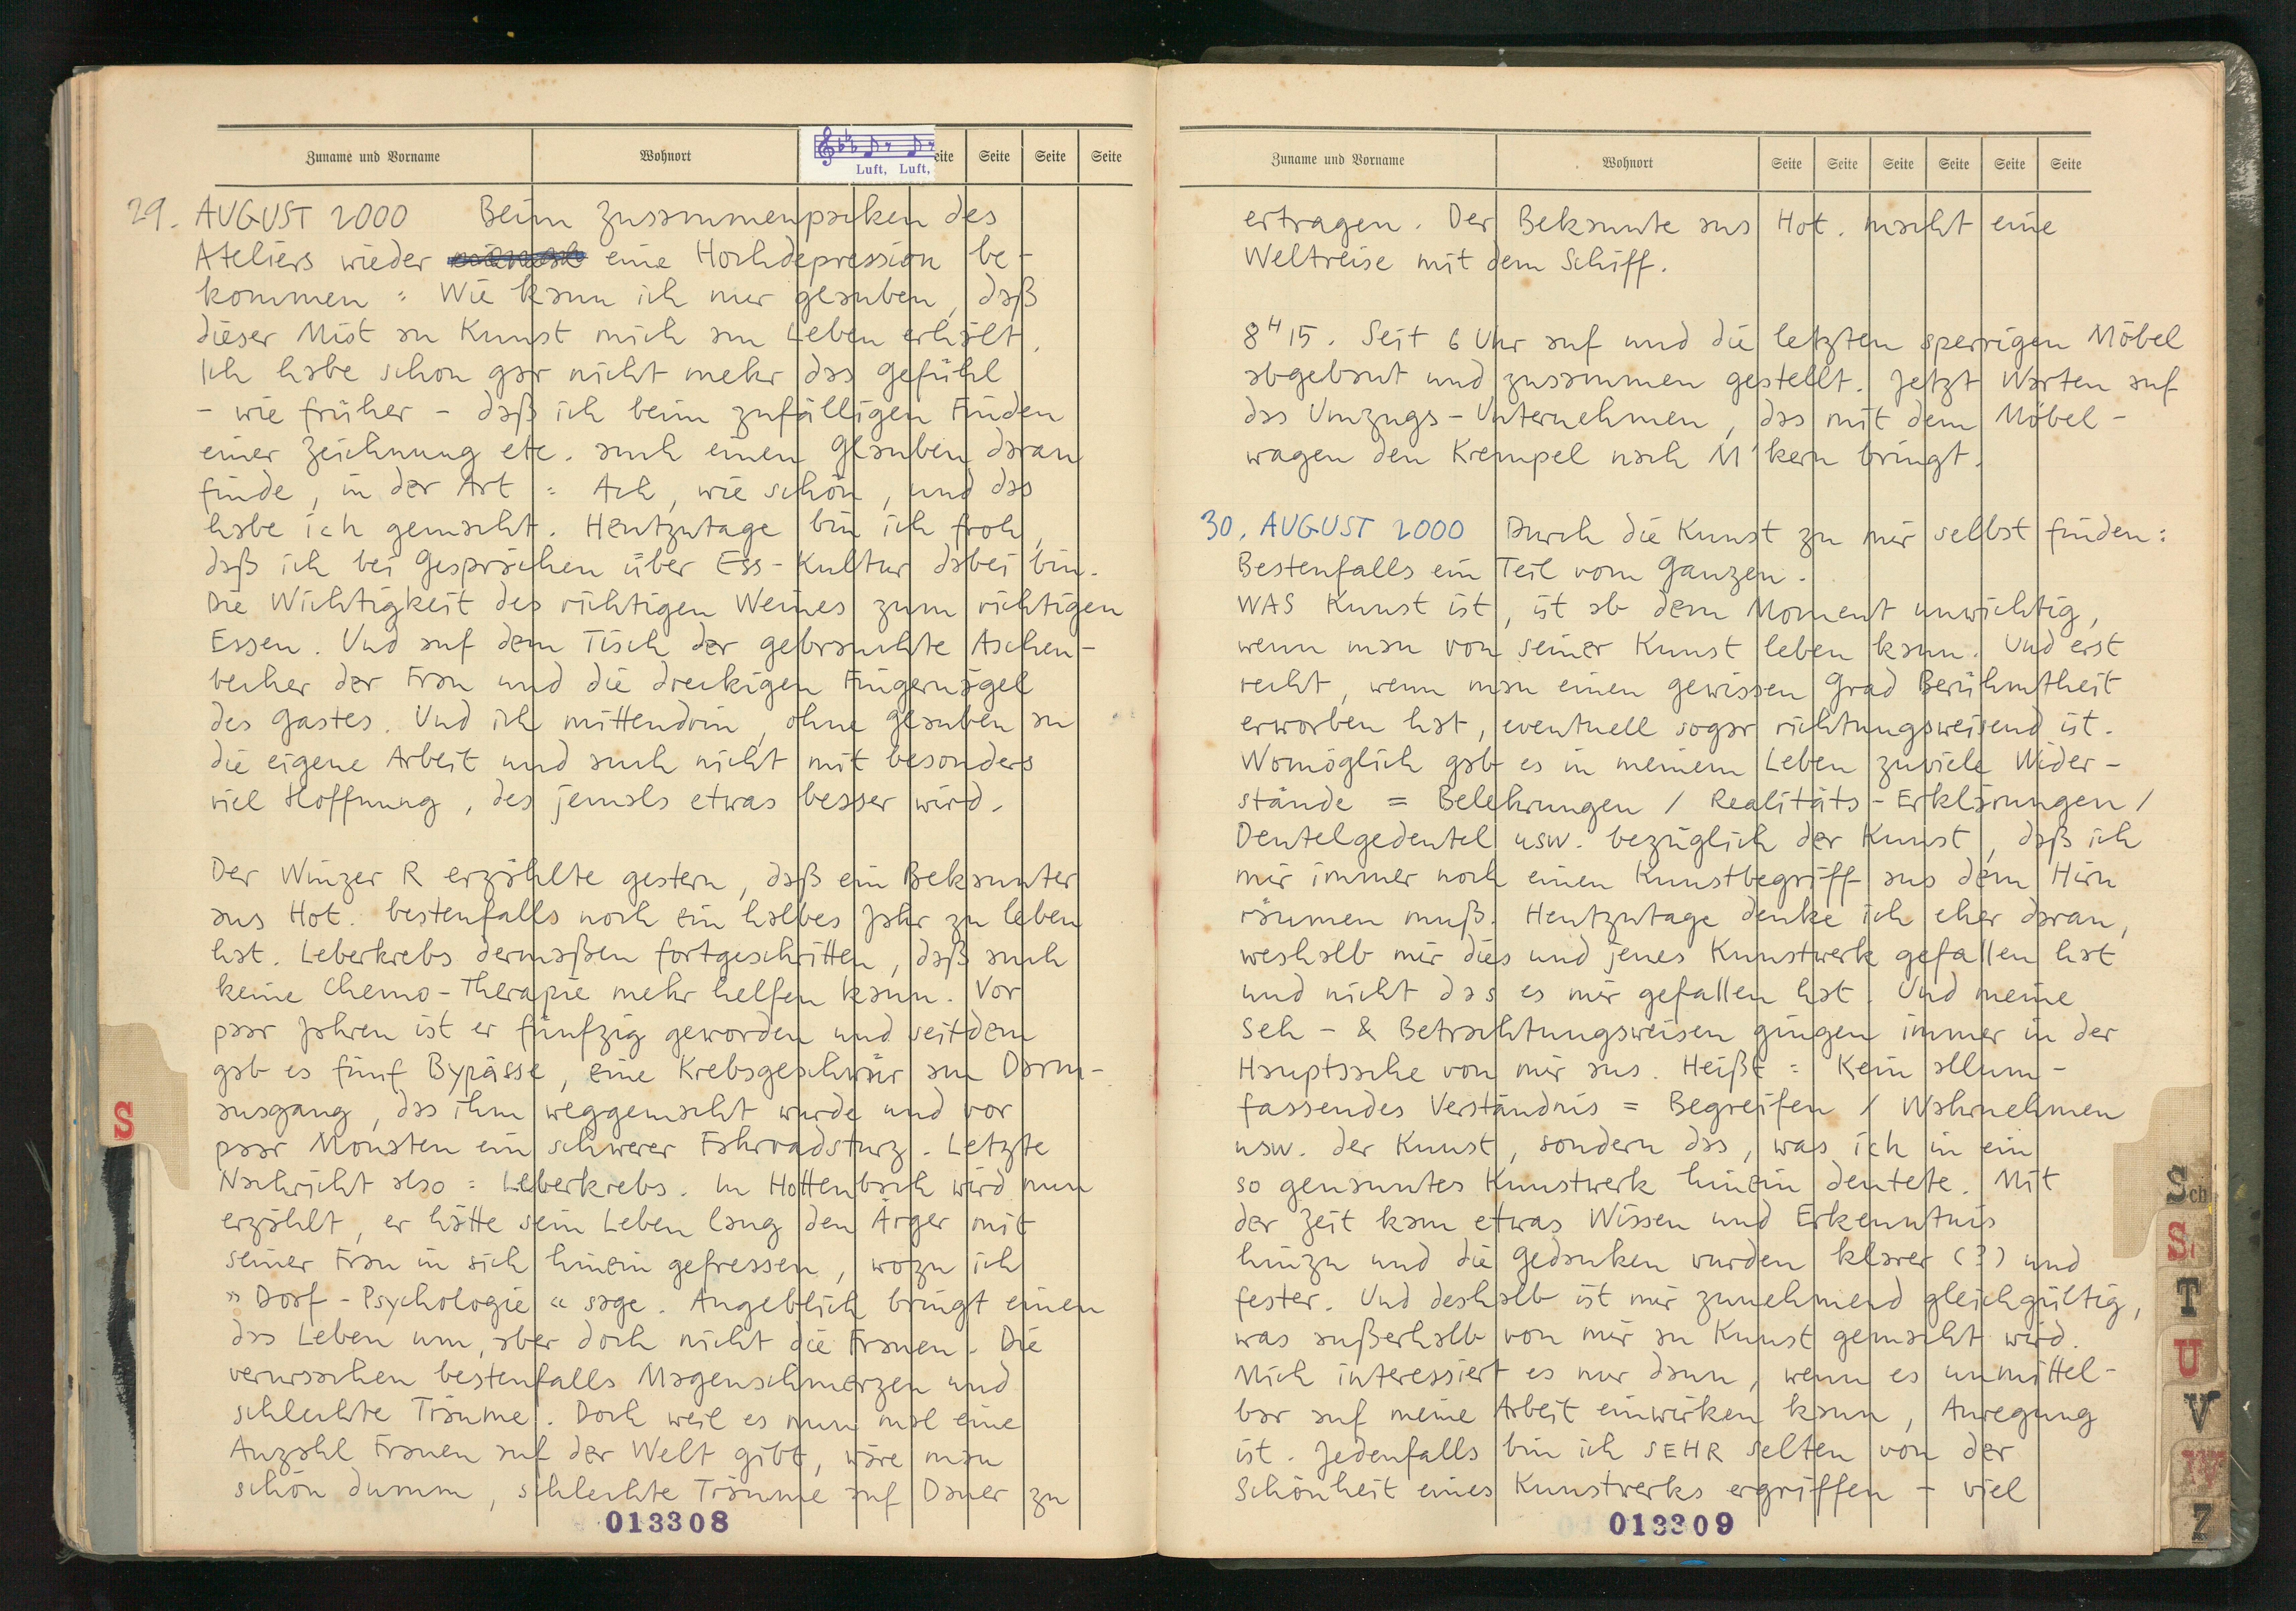 Zuname und Vorname Wohnort eite Seite Seite Seite
Luft, Luft,
29. AUGUST 2000 Beim Zusammenpacken des
Ateliers wieder eine Hochdepression be-
kommen = Wie kann ich nur glauben, daß
dieser Mist an Kunst mich am Leben erhält.
Ich habe schon gar nicht mehr das Gefühl
- wie früher - daß ich beim zufälligen Finden
einer Zeichnung etc. auch einen Glauben daran
finde, in der Art = Ach, wie schön, und das
habe ich gemacht. Heutzutage bin ich froh,
daß ich bei Gesprächen über Ess-Kultur dabei bin.
Die Wichtigkeit des richtigen Weines zum richtigen
Essen. Und auf dem Tisch der gebrauchte Aschen-
becher der Frau und die dreckigen Fingernägel
des Gastes. Und ich mittendrin, ohne Glauben an
die eigene Arbeit und auch nicht mit besonders
viel Hoffnung, des jemals etwas besser wird.
Der Winzer R erzählte gestern, daß ein Bekannter
aus Hot. bestenfalls noch ein halbes Jahr zu leben
hat. Leberkrebs dermaßen fortgeschritten, daß auch
keine Chemo-Therapie mehr helfen kann. Vor
paar Jahren ist er fünfzig geworden und seitdem
gab es fünf Bypässe, eine Krebsgeschwür am Darm-
ausgang, das ihm weggemacht wurde und vor
paar Monaten ein schwerer Fahrradsturz. Letzte
Nachricht also = Leberkrebs. In Hottenbach wird nun
erzählt, er hätte sein Leben lang den Ärger mit
seiner Frau in sich hinein gefressen, wozu ich
"Dorf-Psychologie" sage. Angeblich bringt einen
das Leben um, aber doch nicht die Frauen. Die
verursachen bestenfalls Magenschmerzen und
schlechte Träume. Doch weil es nun mal eine
Anzahl Frauen auf der Welt gibt, wäre man
schön dumm, schlechte Träume auf Dauer zu
013308
S
Zuname und Vorname Wohnort Seite Seite Seite Seite Seite Seite
ertragen. Der Bekannte aus Hot. macht eine
Weltreise mit dem Schiff.
8H15. Seit 6 Uhr auf und die letzten sperrigen Möbel
abgebaut und zusammen gestellt. Jetzt Warten auf
das Umzugs-Unternehmen, das mit dem Möbel-
wagen den Krempel nach M'kern bringt.
30. AUGUST 2000 Durch die Kunst zu mir selbst finden:
Bestenfalls ein Teil vom Ganzen.
WAS Kunst ist, ist ab dem Moment unwichtig,
wenn man von seiner Kunst leben kann. Und erst
recht, wenn man einen gewissen Grad Berühmtheit
erworben hat, eventuell sogar richtungsweisend ist.
Womöglich gab es in meinem Leben zuviele Wider-
stände = Belehrungen / Realitäts-Erklärungen /
Deutelgedeutel usw. bezüglich der Kunst, daß ich
mir immer noch einen Kunstbegriff aus dem Hirn
räumen muß. Heutzutage denke ich eher daran,
weshalb mir dies und jenes Kunstwerk gefallen hat
und nicht das es mir gefallen hat. Und meine
Seh- & Betrachtungsweisen gingen immer in der
Hauptsache von mir aus. Heißt = Kein allum-
fassendes Verständnis = Begreifen / Wahrnehmen
usw. der Kunst, sondern das, was ich in ein
so genanntes Kunstwerk hinein deutete. Mit
der Zeit kam etwas Wissen und Erkenntnis
hinzu und die Gedanken wurden klarer (?) und
fester. Und deshalb ist mir zunehmend gleichgültig,
was außerhalb von mir an Kunst gemacht wird.
Mich interessiert es nur dann, wenn es unmittel-
bar auf meine Arbeit einwirken kann, Anregung
ist. Jedenfalls bin ich SEHR selten von der
Schönheit eines Kunstwerks ergriffen - viel
013309
Sch
S
T
U
V
W
Z